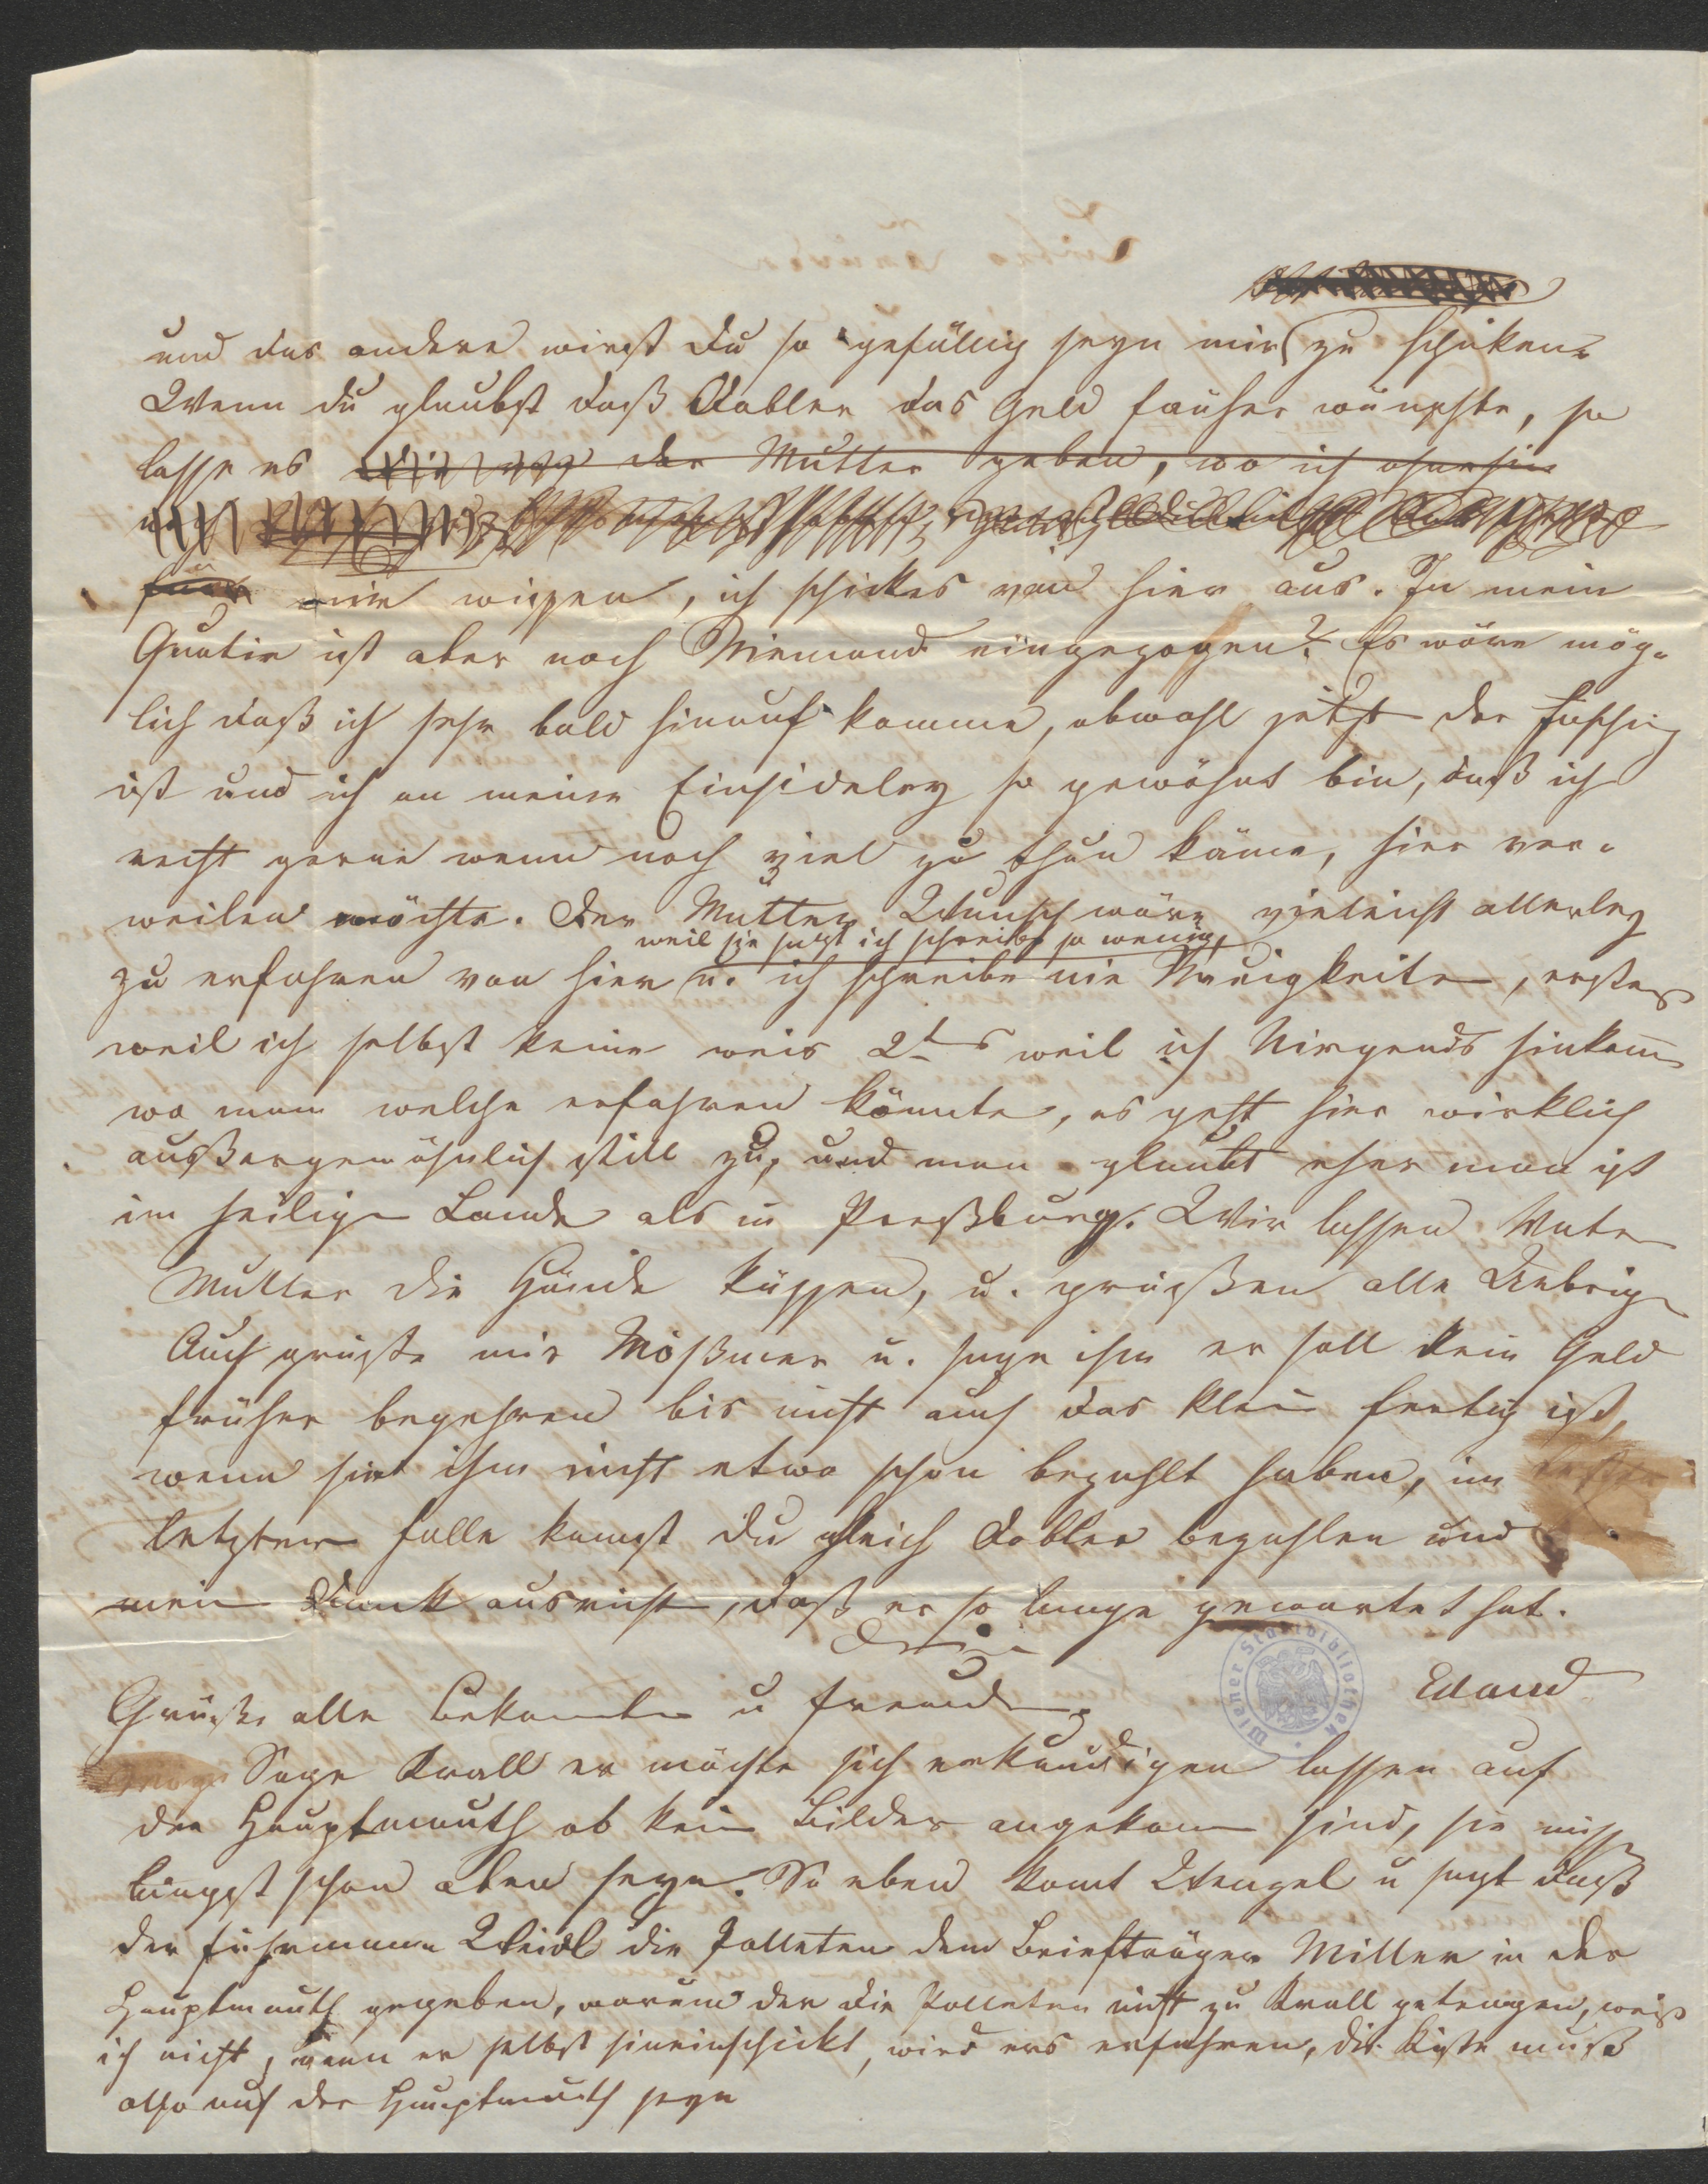 und das andere wirst du so gefällig seyn mir zu schiken.
Wenn du glaubst daß Dobler das Geld früher wünschte, so
lasse es der Mutter geben, wo ich ohnehin
noch
für mir wissen, ich schickes von hier aus. In mein
Quatir ist aber noch Niemand eingezogen? Es wäre mög-
lich daß ich sehr bald hinauf komme, obwohl jetzt der Fasching
ist und ich an meine Einsideley so gewöhnt bin, daß ich
recht gerne wenn noch viel zu thun käme, hier ver-
weilen möchte. Der Mutter Wunsch wäre vieleicht allerley
weil sie sagt ich schreibe so wenig,
zu erfahren von hier u. ich schreibe nie Neuigkeiten, erstens
weil ich selbst keine weis 2tens weil ich Nirgends hinkomm
wo man welche erfahren könnte, es geht hier wirklich
außergewöhnlich still zu, und man glaubt eher man ist
im heiligen Lande als in Preßburg. Wir lassen Vater
Mutter die Hände küssen, u. grüßen alle Uebrigen
Auch grüße mir Mößmer u. sage ihm er soll kein Geld
früher begehren bis nicht auch das kleine fertig ist,
wenn sie ihm nicht etwa schon bezahlt haben, im
letztern Falle kannst du gleich Dobler bezahlen und
mein Dank ausrichten, daß er so lange gewartet hat.
Dein
Eduard
Grüße alle Bekannte u Freunde.
Sage Krall er möchte sich erkundigen lassen auf
der Hauptmauth ob keine Bilder angekommen sind, sie müssen
längst schon oben seyn. So eben komt Wengel u sagt daß
der Fuhrmann Weidl die Polleten dem Briefträger Miller in der
Hauptmauth gegeben, warum der die Polleten nicht zu Krall getragen, weiß
ich nicht, wenn er selbst hineinschickt, wird ers erfahren, die Kiste muß
also auf der Hauptmauth seyn
Wiener Stadtbibliothek